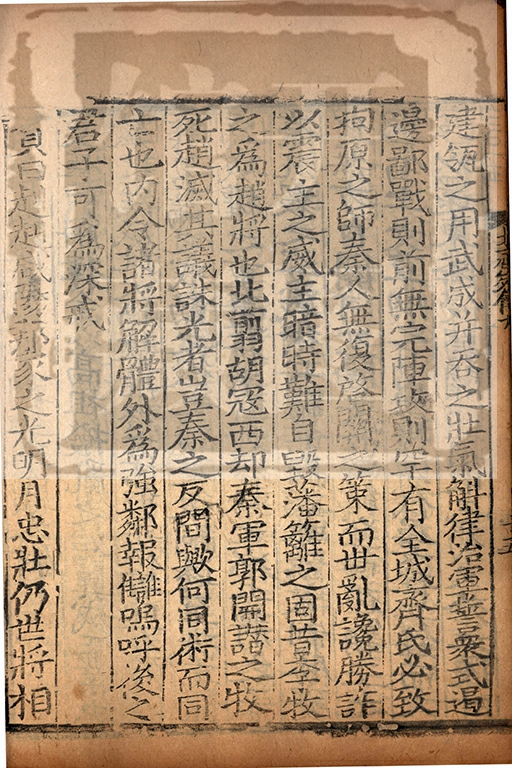 建瓴之用武成并吞之壯氣斛律治軍誓衆式遏
邊鄙戰則前無完陣攻則罕有全城齊氏必致
拘原之師秦人無復啓關之策而世亂讒勝詐
以震主之威主暗時難自毀藩籬之固昔李牧
之爲趙將也北翦胡寇西却秦軍郭開譖之牧
死趙滅其議誅光者豈秦之反間歟何同術而同
亡也内令諸將解體外爲強鄰報讎嗚呼後之
君子可爲深戒
贊曰赳赳咸陽邦家之光明月忠壯仍世將相